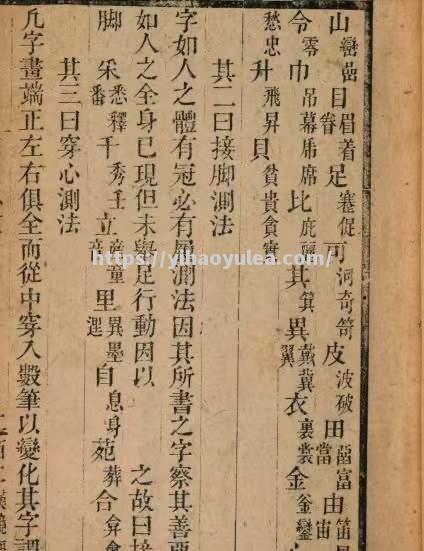 山 巒嵒 目 眉着 足 蹇促 可 河奇笴 皮 波破 田 富 由 笛
令 零 巾 吊幕席 比 庇 其 箕 異 戴冀翼 衣 裏裳 金 釜鑾
愁忠 升 飛昇 貝 貧貴貪實
其二曰接脚測法
字如人之體有冠必有履測法因其所書之字察其善
如人之全身已現但未舉足行動因以 之故曰接
脚 釆 悉釋番 千 秀壬 立 童 里 異墨 自 息身 苑 葬 合 弇
其三曰穿心測法
凡字畫端正左右俱全而從中穿入數筆以變化其字
https://yihaoyulea.com/